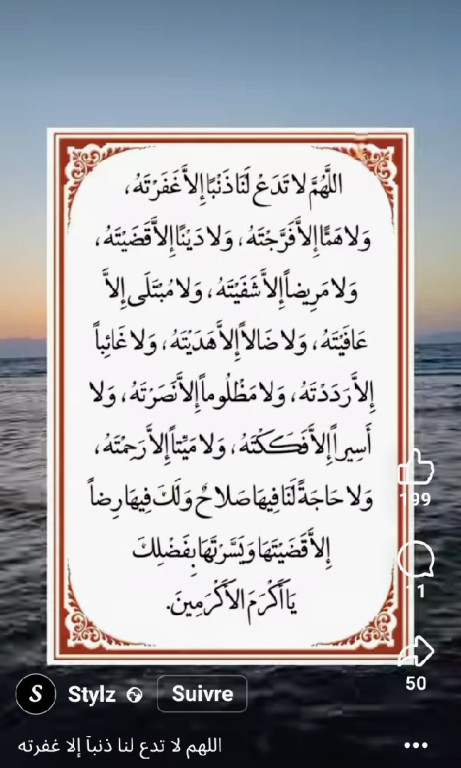 اللَّهُمَّ لا تَدَعْ لَنَا ذَنْبًا إِلاَّ غَفَرْتَهُ،
وَلا هَمًّا إِلاَّ فَرَّجْتَهُ، وَلا دَيْنًا إِلاَّ قَضَيْتَهُ،
وَلا مَرِيضاً إِلاَّ شَفَيْتَهُ، وَلا مُبْتَلَى إِلاَّ
عَافَيْتَهُ، وَلا ضَالاًّ إِلاَّ هَدَيْتَهُ، وَلا غَائِباً
إِلاَّ رَدَدْتَهُ، وَلا مَظْلُوماً إِلاَّ نَصَرْتَهُ، وَلا
أَسِيراً إِلاَّ فَكَكْتَهُ، وَلا مَيِّتاً إِلاَّ رَحِمْتَهُ،
وَلا حَاجَةً لَنَا فِيهَا صَلاحٌ وَلَكَ فِيهَا رِضاً
إِلاَّ قَضَيْتَهَا وَيَسَّرْتَهَا بِفَضْلِكَ
يَا أَكْرَمَ الأَكْرَمِينَ.
199
11
50
S Stylz Suivre
اللهم لا تدع لنا ذنبآ إلا غفرته